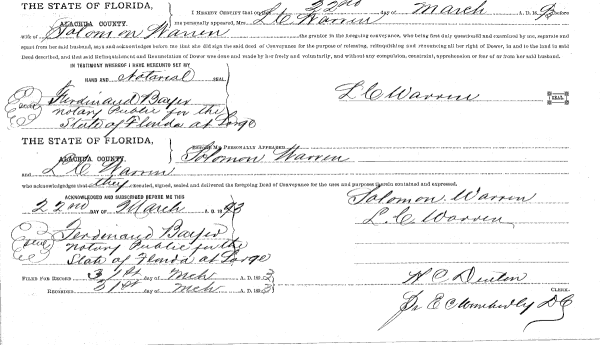 THE STATE OF FLORIDA,
ALACHUA COUNTY.
I HEREBY CERTIFY that on this 22nd day of March A. D. 1893 before
me personally appeared, Mrs. L. C. Warren
wife of Solomon Warren the grantor in the foregoing conveyance, who being first duly questioned and examined by me, separate and
apart from her said husband, says and acknowledges before me that she did sign the said deed of Conveyance for the purpose of releasing, relinquishing and renouncing all her right of Dower, in and to the land in said
Deed described, and that said Relinquishment and Renunciation of Dower was done and made by her freely and voluntarily, and without any compulsion, constraint, apprehension or fear of or from her said husband.
IN TESTIMONY WHEREOF I HAVE HEREUNTO SET MY
HAND AND Notarial SEAL
Seal Ferdinand Bayer
Notary Public for the
State of Florida at Large
L. C. Warren SEAL
THE STATE OF FLORIDA,
ALACHUA COUNTY.
BEFORE ME PERSONALLY APPEARED Solomon Warren
and L. C. Warren
who acknowledges that they executed, signed, sealed and delivered the foregoing Deed of Conveyance for the uses and purposes therein contained and expressed.
ACKNOWLEDGED AND SUBSCRIBED BEFORE ME THIS
22nd DAY OF March A. D. 1893
Solomon Warren
L. C. Warren
Seal Ferdinand Bayer
Notary Public for the
State of Florida at Large
FILED FOR RECORD 31st day of Mch A. D. 1893
RECORDED 31st day of Mch A. D. 1893
CLERK.
D C